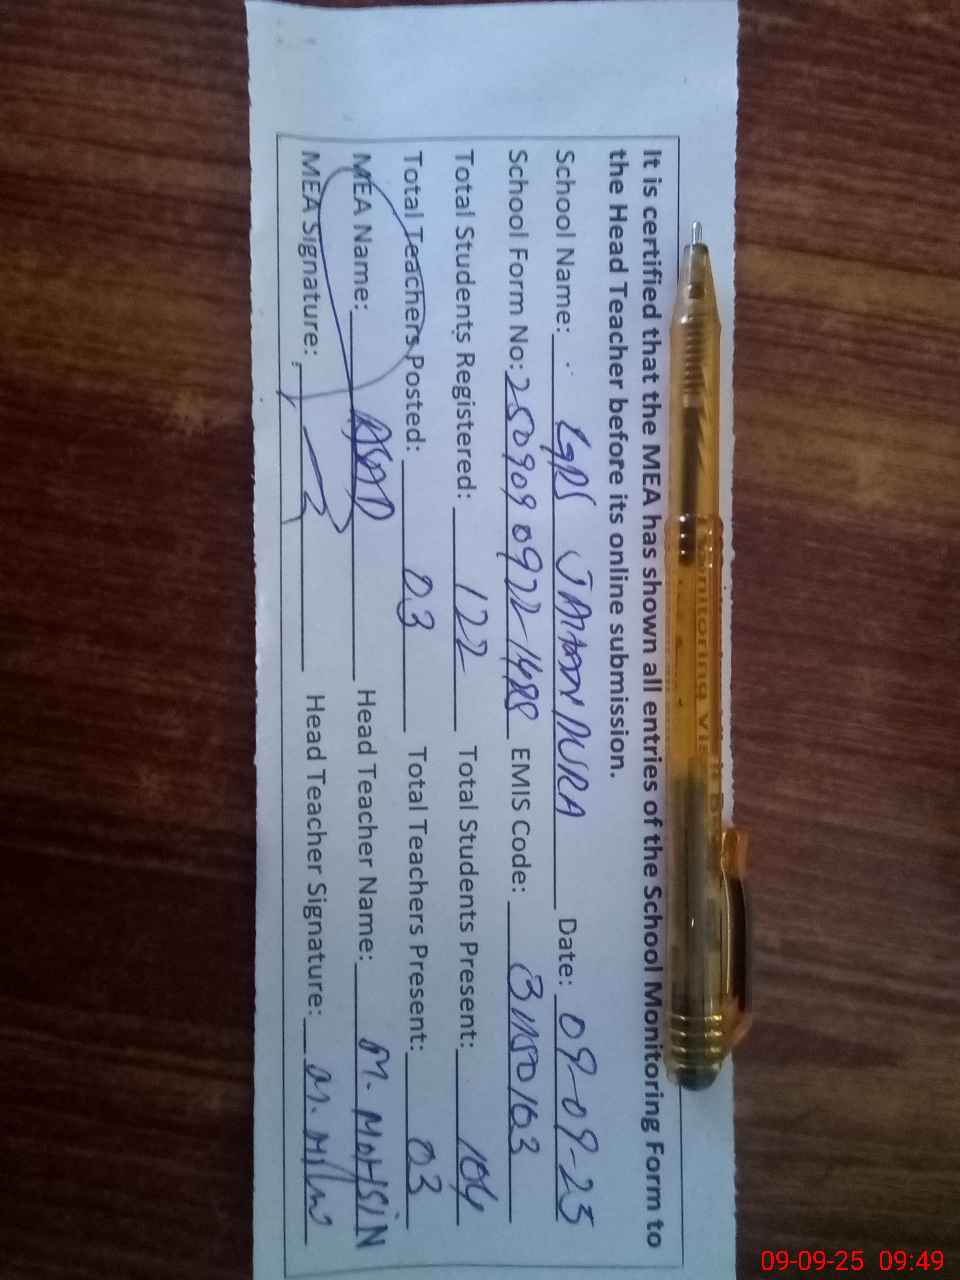 It is certified that the MEA has shown all entries of the School Monitoring Form to
the Head Teacher before its online submission.
School Name: GPS JAHAN PURA Date: 09-09-25
School Form No: 2509090922-1488 EMIS Code:
Total Students Registered: 122 Total Students Present: 104
Total Teachers Posted: 03 Total Teachers Present: 03
MEA Name: ASAD Head Teacher Name: M. MOHSIN
MEA Signature: Head Teacher Signature:
09-09-25 09:49